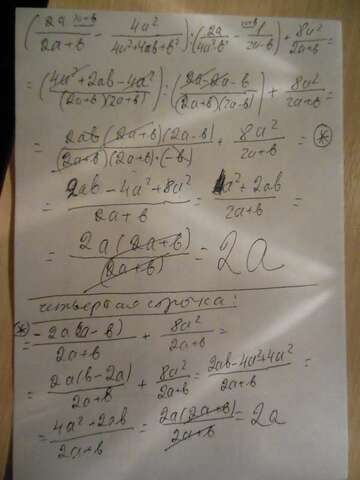 (2a 2a+в/2a+в - 4a²/4a²+4ab+b²) : (2a/4a²-b² - 1/2a-b) + 8a²/2a+b =
= (4a²+2ab-4a²/(2a+b)(2a+b)) : (2a-2a-b/(2a+b)(2a-b)) + 8a²/2a+b =
= 2ab(2a+b)(2a-b)/(2a+b)(2a+b)·(-b) + 8a²/2a+b = *
= 2ab-4a²+8a²/2a+b = 4a²+2ab/2a+b =
= 2a(2a+b)/(2a+b) = 2a
четвертая строчка:
* = -2a(2a-b)/2a+b + 8a²/2a+b =
= 2a(b-2a)/2a+b + 8a²/2a+b = 2ab-4a²+4a²/2a+b =
= 4a²+2ab/2a+b = 2a(2a+b)/2a+b = 2a